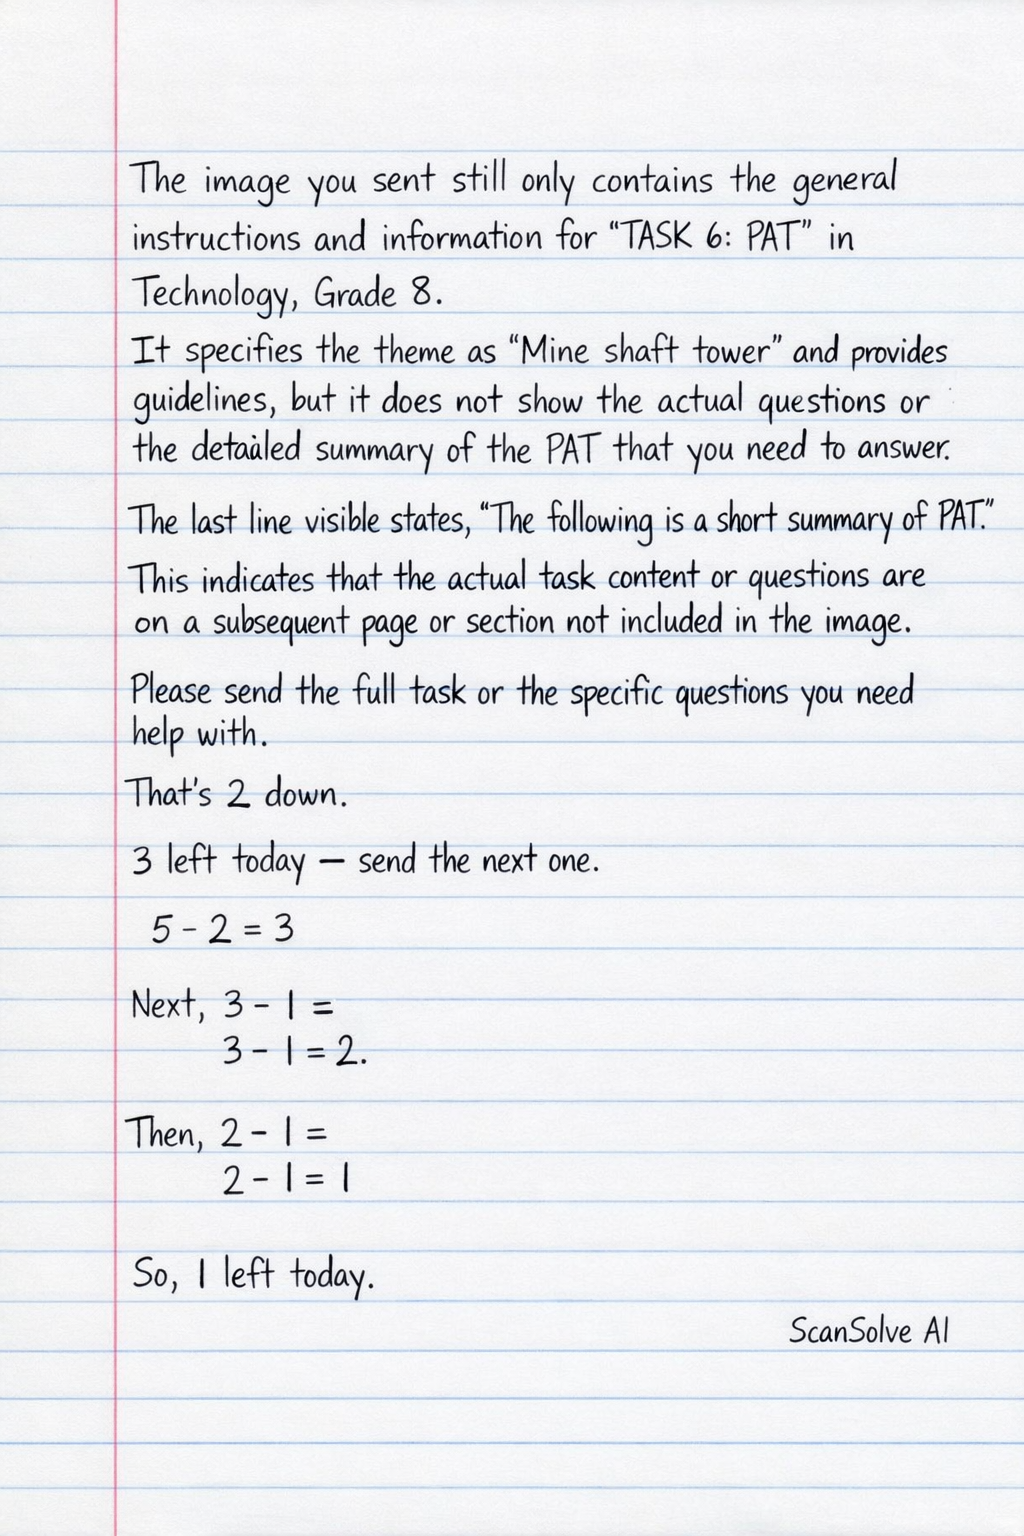 The image you sent still only contains the general
instructions and information for “TASK 6: PAT” in
Technology, Grade 8.
It specifies the theme as “Mine shaft tower” and provides
guidelines, but it does not show the actual questions or
the detailed summary of the PAT that you need to answer.
The last line visible states, “The following is a short summary of PAT.”
This indicates that the actual task content or questions are
on a subsequent page or section not included in the image.
Please send the full task or the specific questions you need
help with.
That's 2 down.
3 left today – send the next one.
5 - 2 = 3
Next, 3 - 1 =
3 - 1 = 2.
Then, 2 - 1 =
2 - 1 = 1
So, 1 left today.
ScanSolve AI